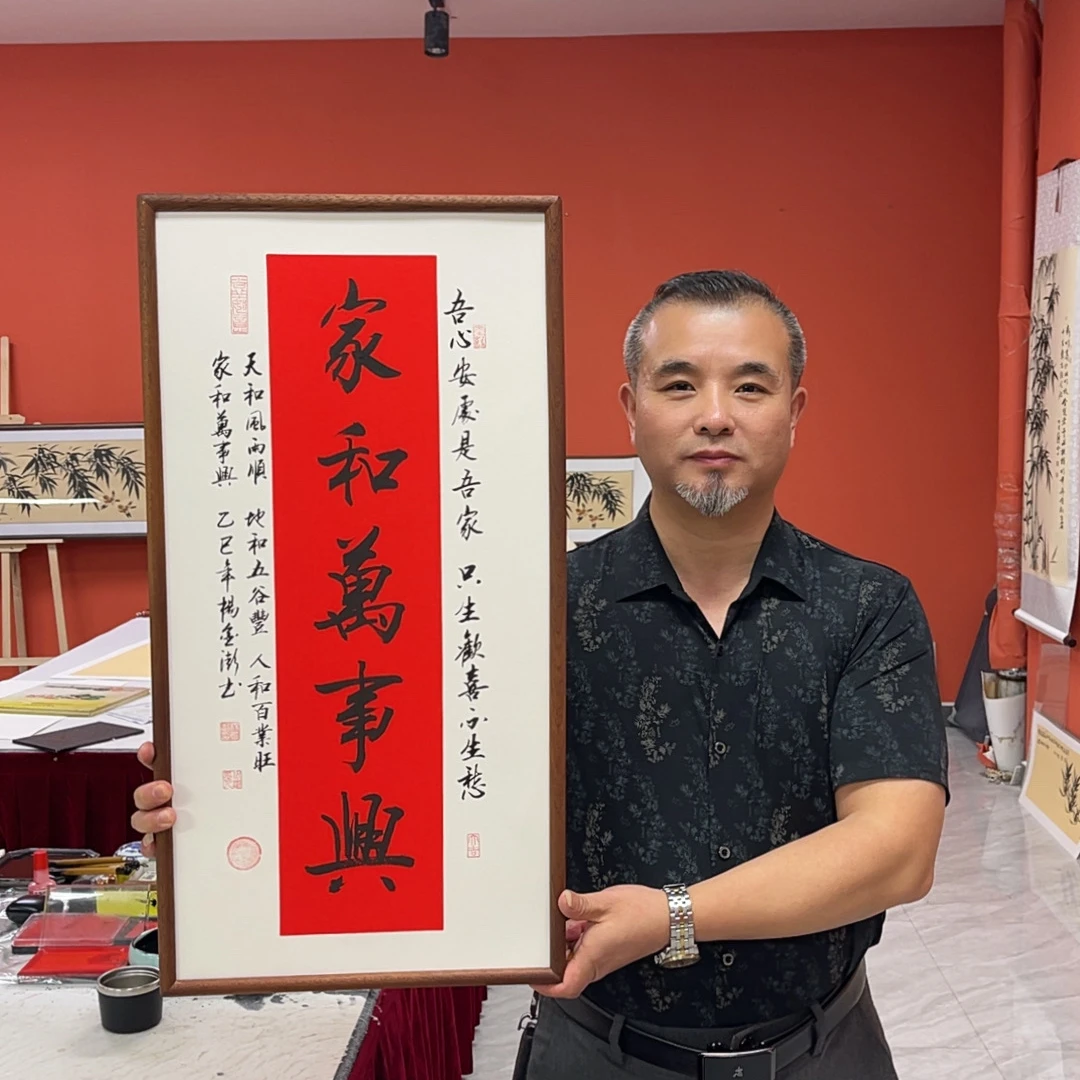 吾心安處是吾家 只生歡喜不生愁
家和萬事興
天和風雨順 地和五谷豐 人和百業旺
家和萬事興 乙巳年楊金澎书